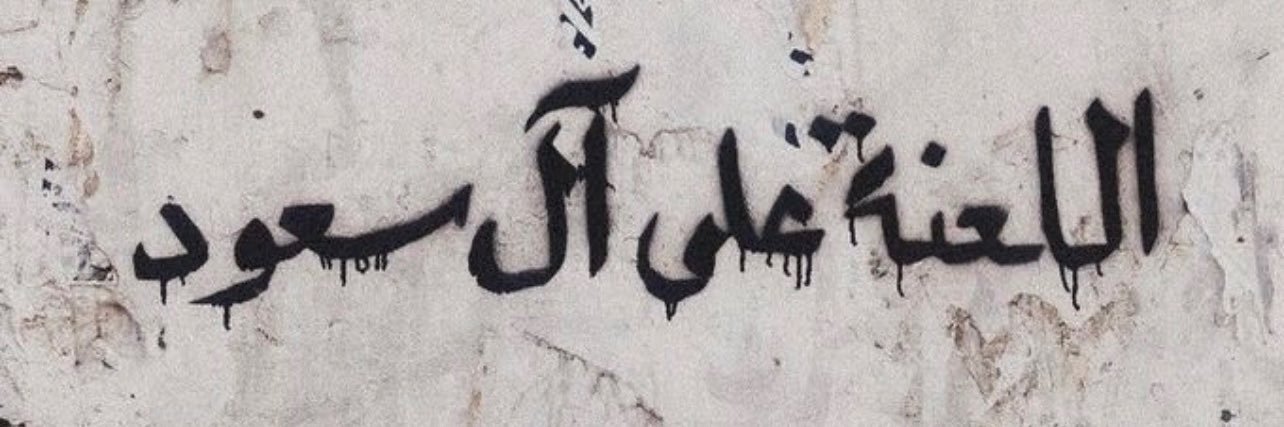 اللعنة على آل سعود